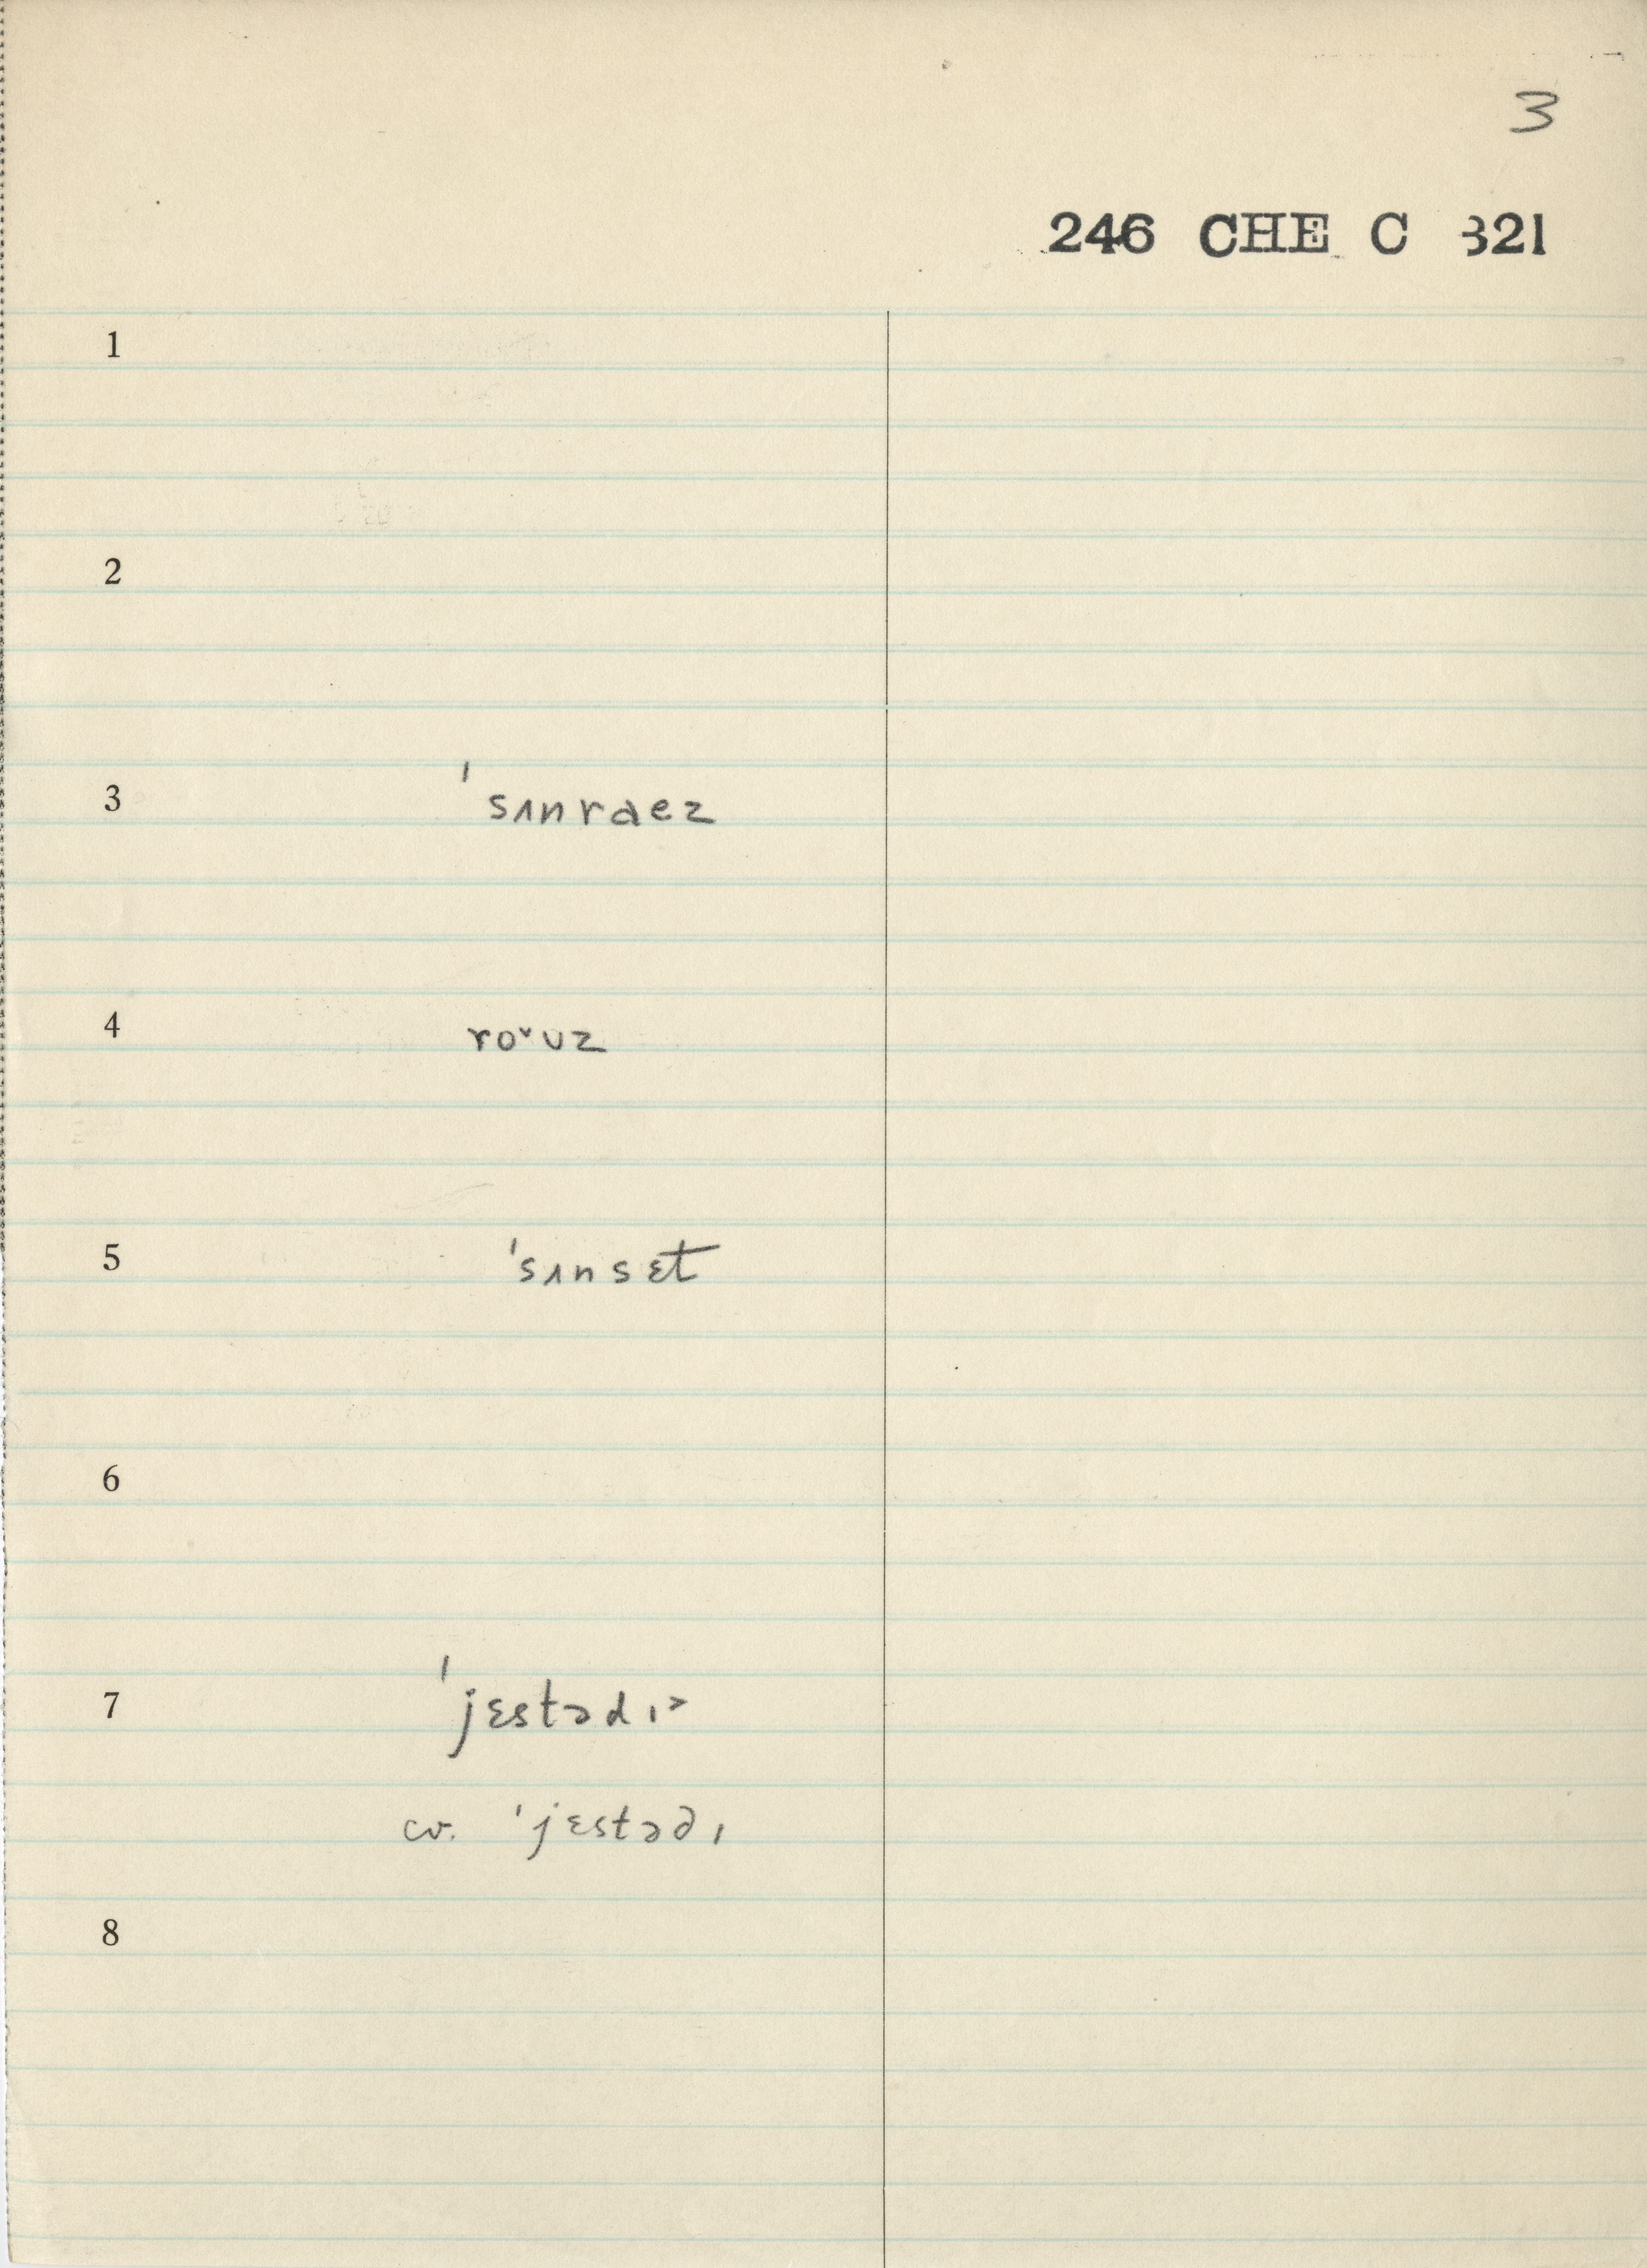 3
246 CHE C 321
1
2
3 ˈsʌnraez
4 ro˅ʊz
5 ˈsʌnsɛt
6
7 ˈjɛstədɪ˃
cv. ˈjɛstədɪ
8